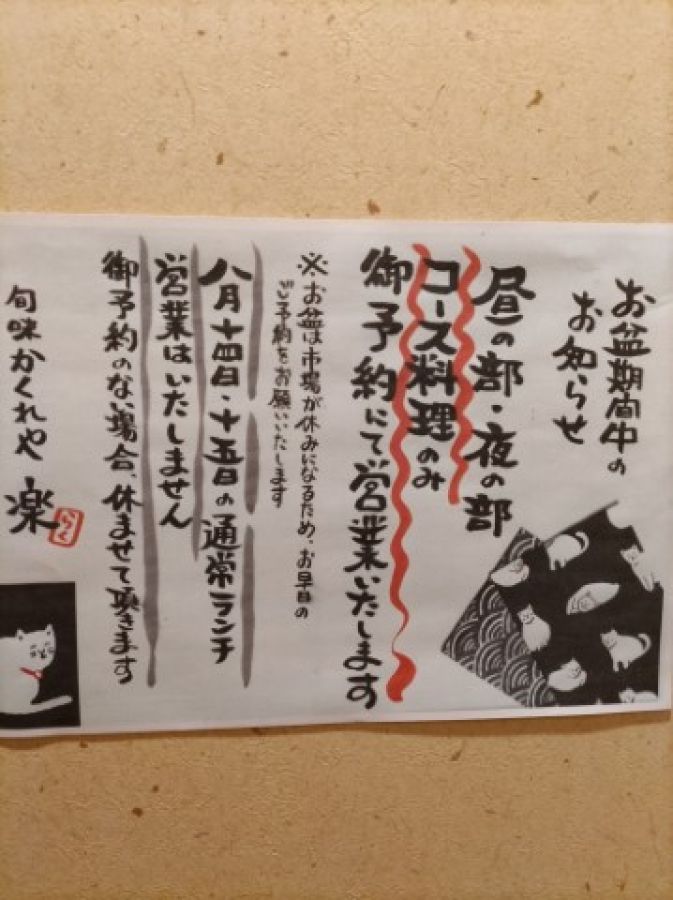 お盆期間中の
お知らせ
昼の部・夜の部
コース料理のみ
御予約にて営業いたします
※お盆は市場が休みになるため、お早目の
ご予約をお願いいたします
八月十四日・十五日の通常ランチ
営業はいたしません
御予約のない場合、休ませて頂きます
旬味かくれや 楽
らく